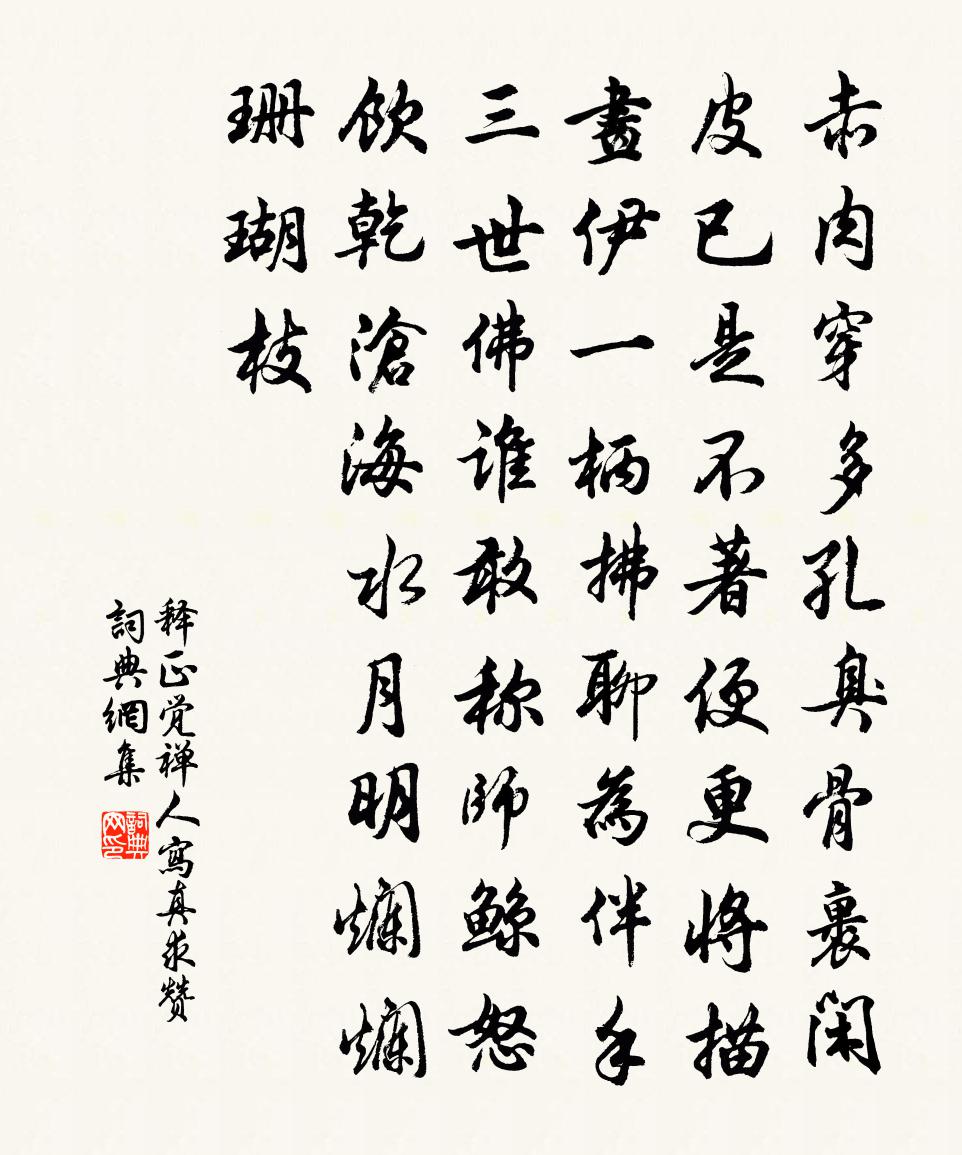 赤肉穿多孔臭骨裹闲
皮已是不著便更将描
畫伊一柄拂聊為伴手
三世佛谁敢称師鲸怒
飲乾滄海水月明爛爛
珊瑚枝
释正觉禅人寫真求赞
詞典網集
詞典网印